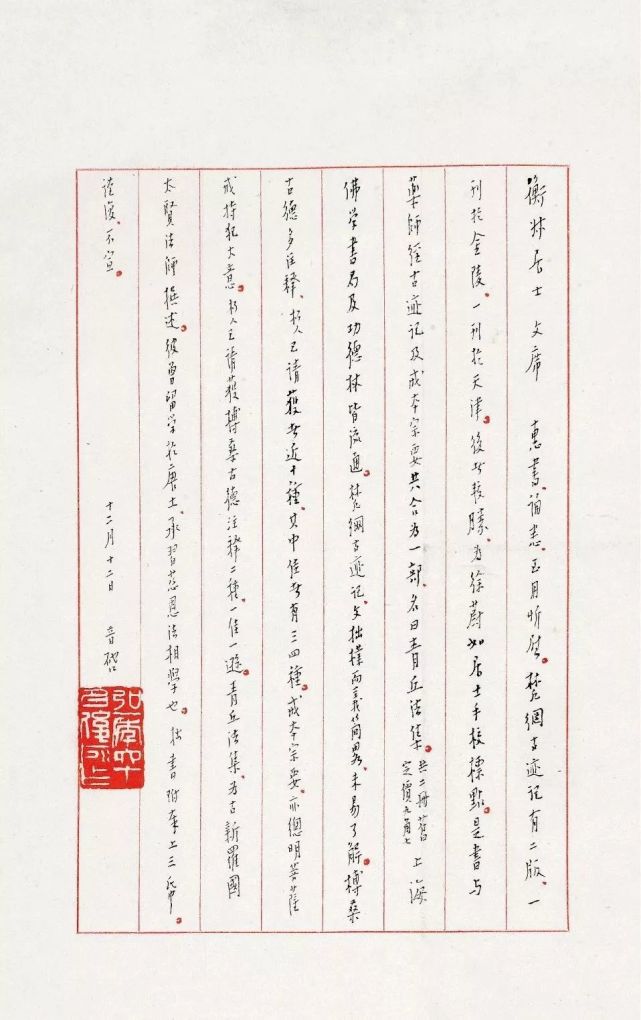 衡林居士文席 惠書誦悉、至用忻慰。梵網古迹記有二版、一
刊於金陵、一刊於天津。後者較勝、為徐蔚如居士手校標點。是書与
藥師經古迹記及戒本宗要共合为一部、名曰青丘法集。共二冊旧定價九角七 上海
佛学書局及功德林皆流通。梵綱古迹记、文拙樸而義簡畧、未易了解。搏桑
古德多注釋、朽人已請獲者近十種、其中佳者有三四種。戒本宗要、亦總明菩薩
戒持犯大意。朽人已請獲搏桑古德注釋二種、一佳一遜。青丘法集、为古新羅國
太賢法師撰述。彼曾留学於唐土、承習慈恩法相學也。拙書附奉上三紙。
謹復、不宣。
十二月十二日 音啓